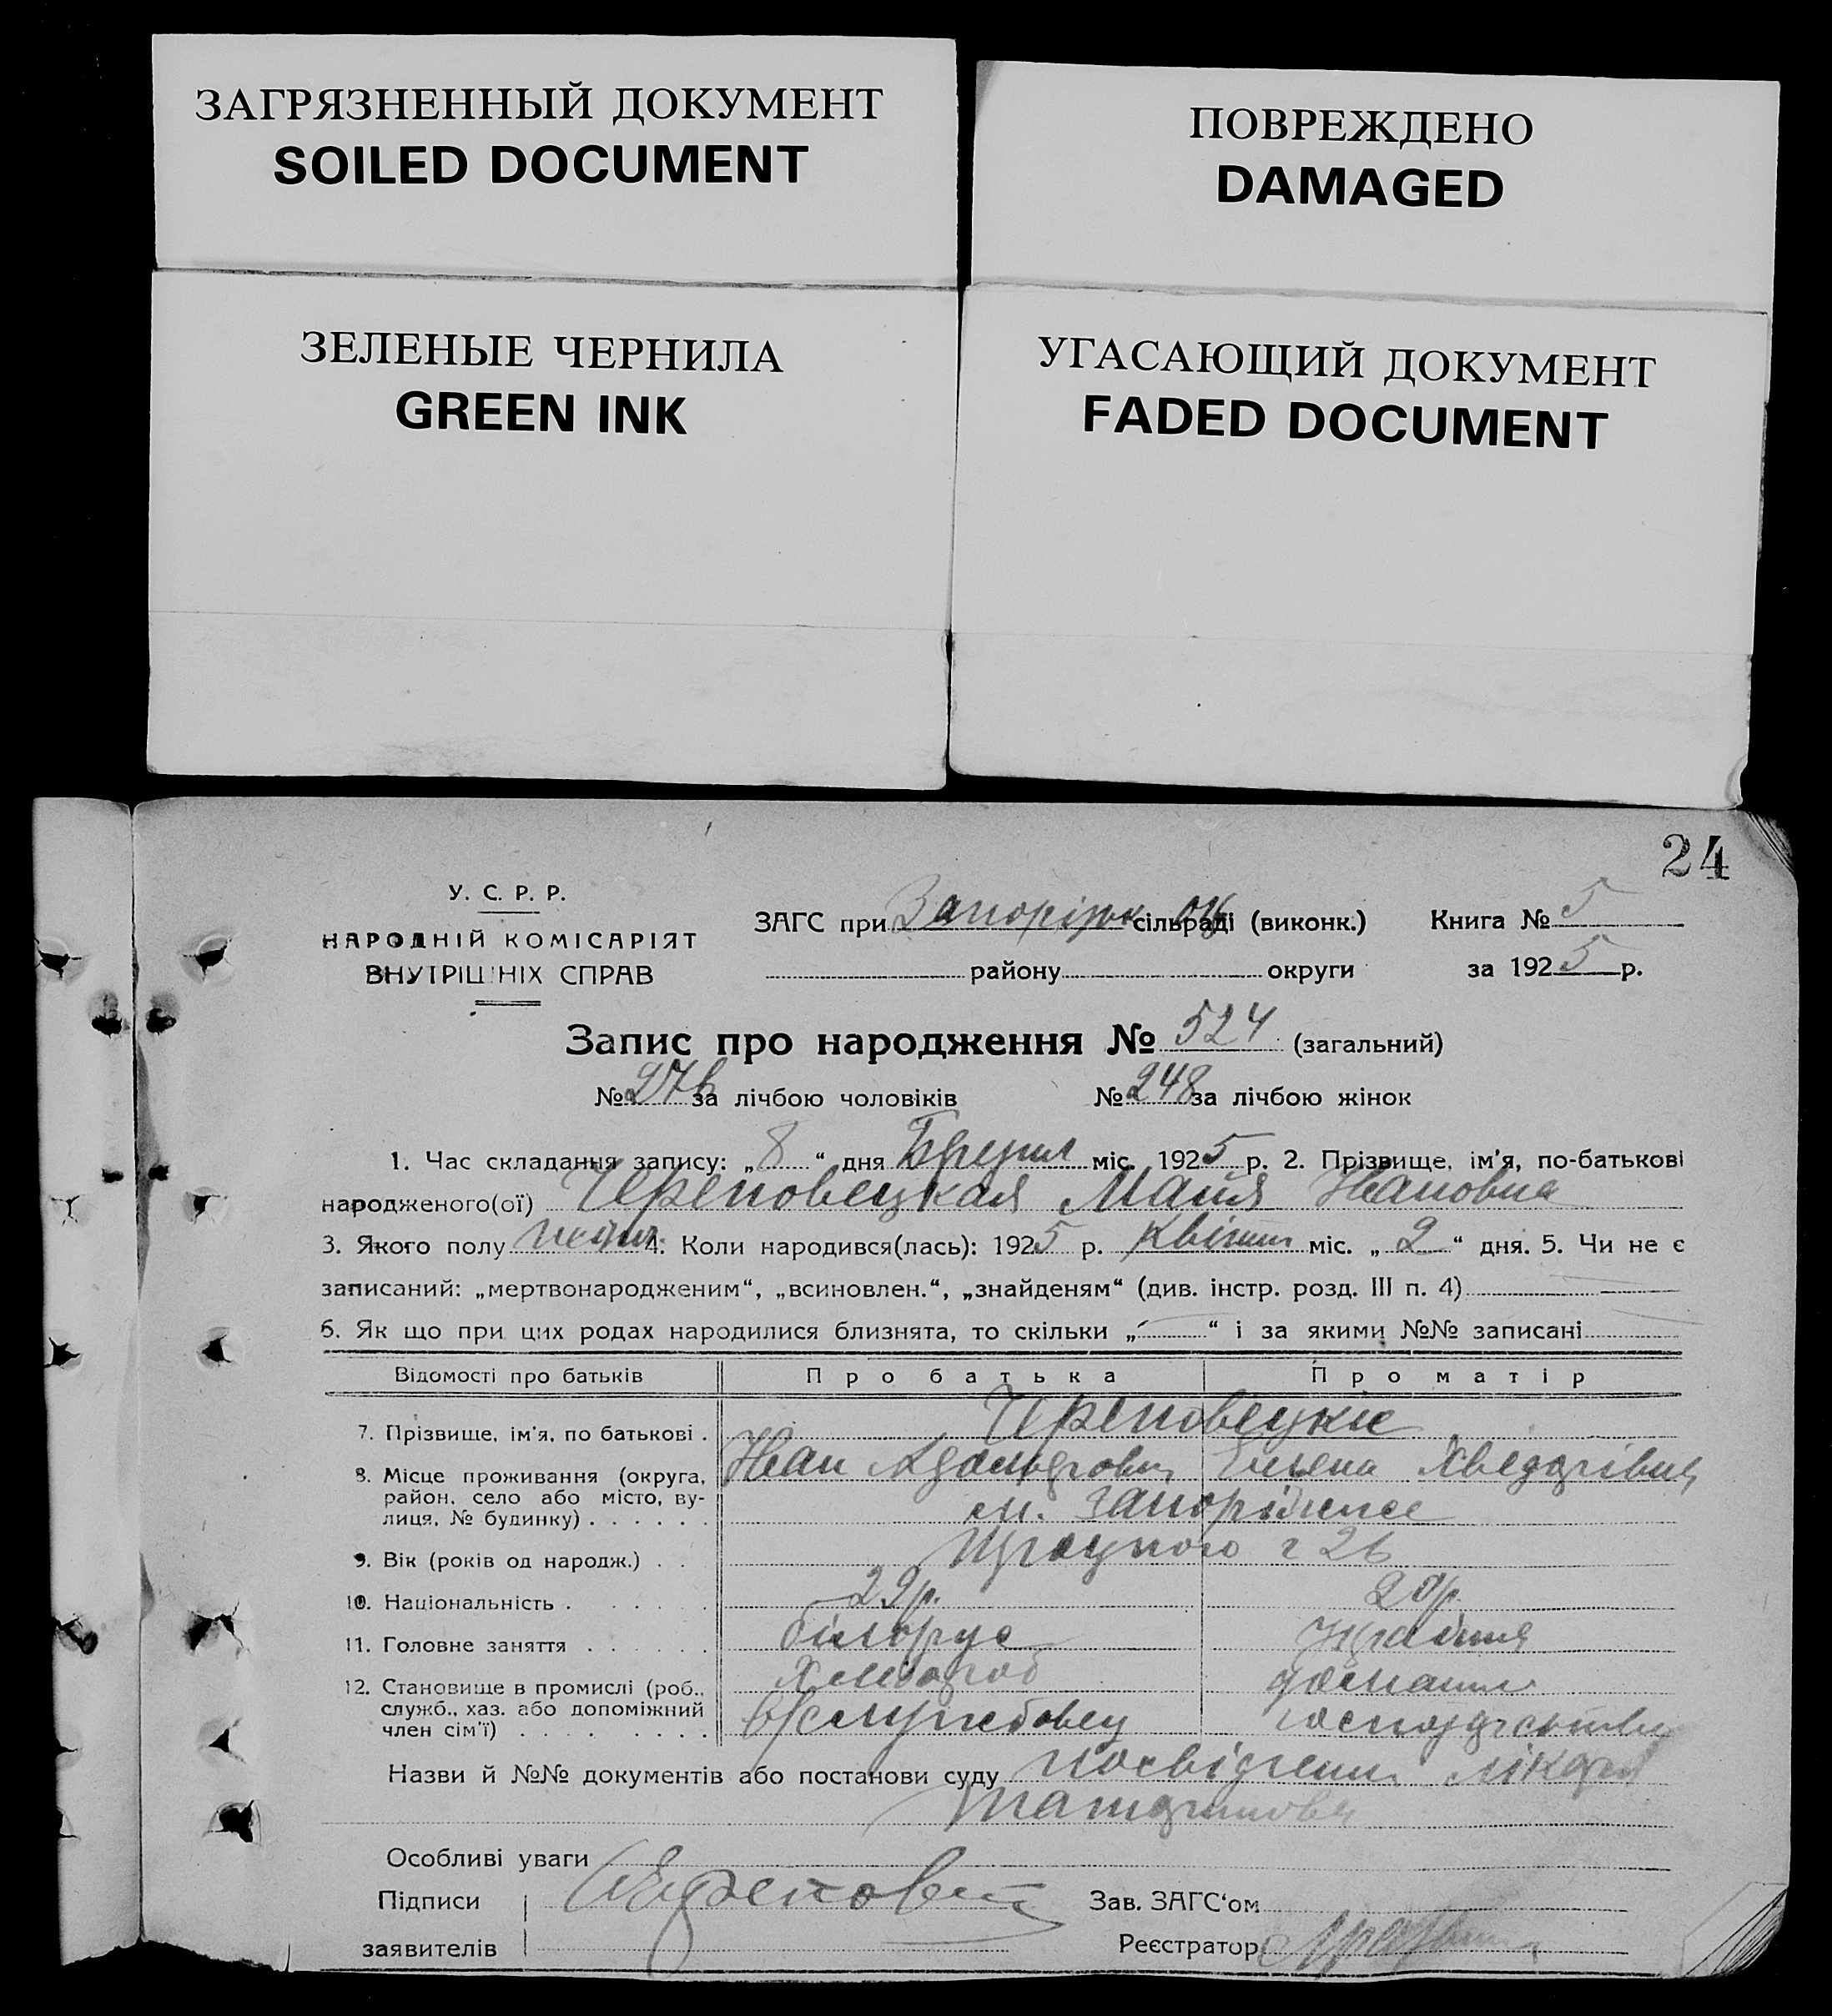 ЗАГРЯЗНЕННЫЙ ДОКУМЕНТ
SOILED DOCUMENT
ПОВРЕЖДЕНО
DAMAGED
ЗЕЛЕНЫЕ ЧЕРНИЛА
GREEN INK
УГАСАЮЩИЙ ДОКУМЕНТ
FADED DOCUMENT
24
У. С. Р. Р.
НАРОДНІЙ КОМІСАРІЯТ
ВНУТРІШНІХ СПРАВ
ЗАГС при Запоріжск сільраді (виконк.) Книга № 5
району округи за 1925 р.
Запис про народження № 524 (загальний)
№ 276 за лічбою чоловіків № 248 за лічбою жінок
1. Час складання запису: „8“ дня міс. 1925 р. 2. Прізвище, ім'я, по-батькові
народженого(ої) Череповецкая Майя Ивановна
3. Якого полу 4. Коли народився(лась): 1925 р. Квітня міс. „2“ дня. 5. Чи не є
записаний: „мертвонародженим“, „всиновлен.“, „знайденям“ (див. інстр. розд. III п. 4)
6. Як що при цих родах народилися близнята, то скільки „ “ і за якими №№ записані
Відомості про батьків Про батька Про матір
7. Прізвище, ім'я, по батькові . Череповецкие
Иван Хведорівна
8. Місце проживання (округа, район, село або місто, вулиця, № будинку) . . . . . . м. Запоріжже
9. Вік (років од народж.) . . Троцького 26
10. Національність . . . . . 29 р. 20 р.
11. Головне заняття . . . . . . білорус
12. Становище в промислі (роб., служб., хаз. або допоміжний член сім'ї) . . . . . . Хлібороб домашнє
в/службовец господарство
Назви й №№ документів або постанови суду посвідчення лікаря
Особливі уваги
Підписи
заявителів
Зав. ЗАГС'ом
Реєстратор